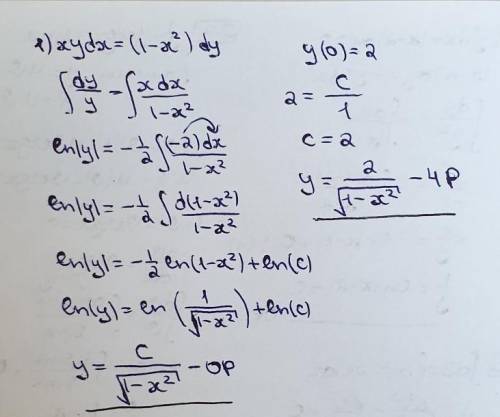 1) xydx = (1-x²) dy
∫ dy/y = ∫ xdx/(1-x²)
ln|y| = -1/2 ∫ (-2)dx/(1-x²)
ln|y| = -1/2 ∫ d(1-x²)/(1-x²)
ln|y| = -1/2 ln(1-x²) + ln(c)
ln(y) = ln (1/√(1-x²)) + ln(c)
y = c/√(1-x²) - ОР
y(0) = 2
2 = c/1
c = 2
y = 2/√(1-x²) - ЧР